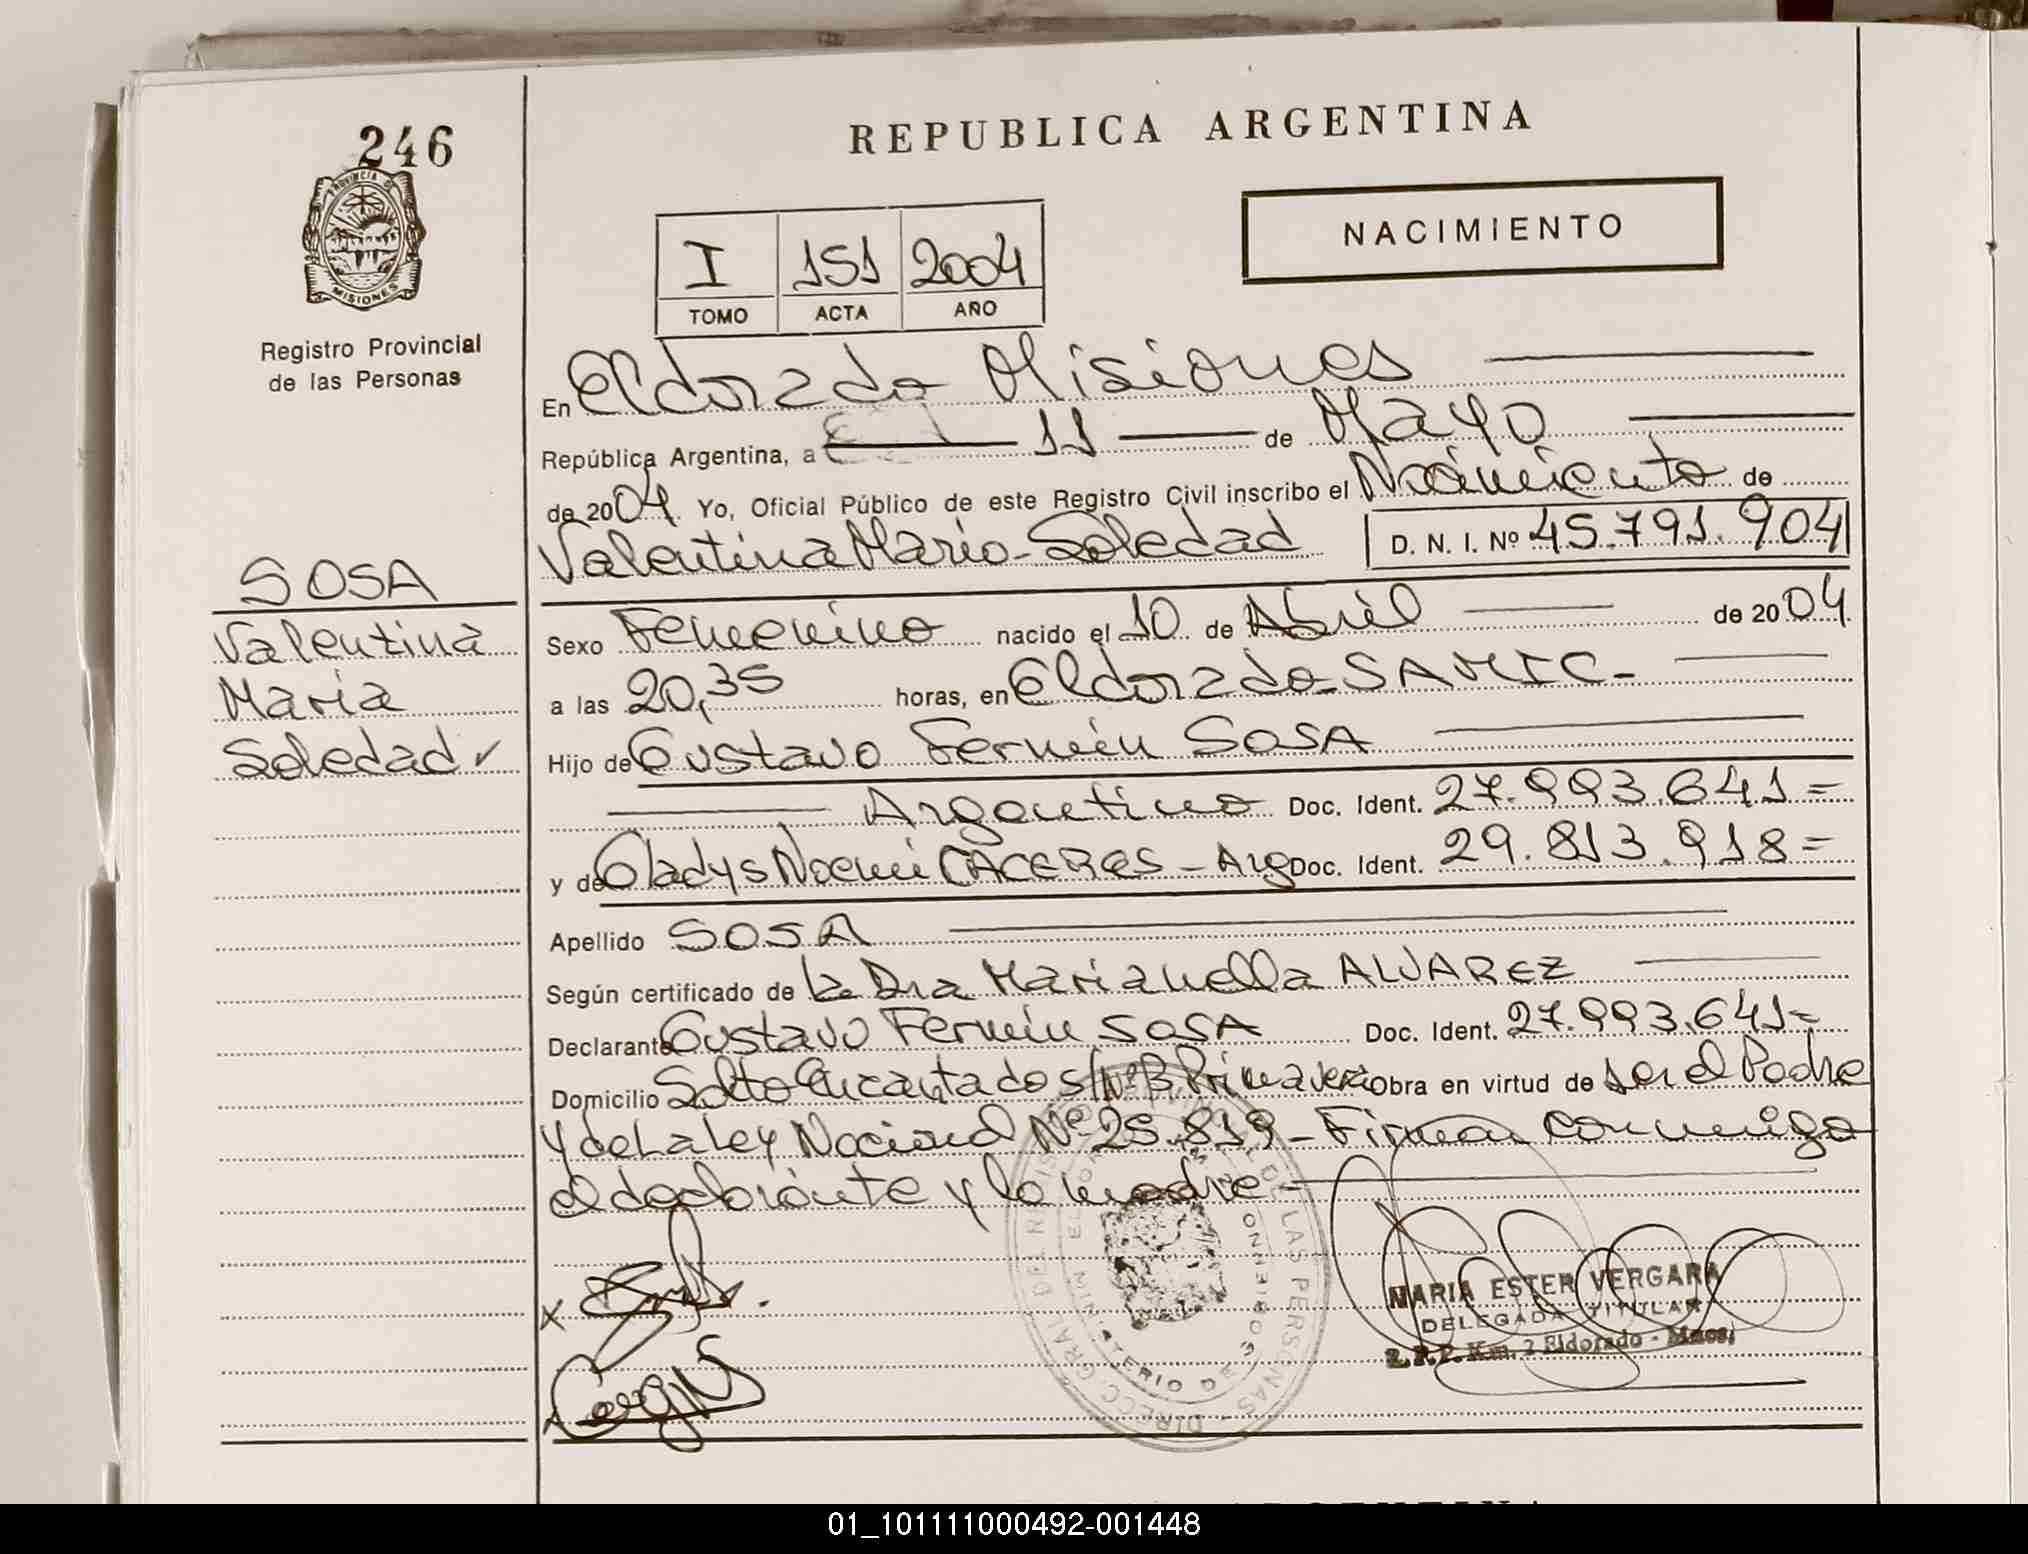 246
PROVINCIA DE
MISIONES
Registro Provincial
de las Personas
REPUBLICA ARGENTINA
NACIMIENTO
I 151 2004
TOMO ACTA AÑO
En Eldorado Misiones
República Argentina, a 11 de Mayo
de 2004. Yo, Oficial Público de este Registro Civil inscribo el Nacimiento de
Valentina Maria Soledad D. N. I. Nº 45.791.904
SOSA
Valentina
Maria
Soledad ✓
Sexo Femenino nacido el 10 de Abril de 2004
a las 20,35 horas, en Eldorado-SAMIC-
Hijo de Gustavo Fermín SOSA
Argentino Doc. Ident. 27.993.641=
y de Gladys Noemi CACERES - Arg Doc. Ident. 29.813.918=
Apellido SOSA
Según certificado de la Dra Marianella ALVAREZ
Declarante Gustavo Fermín SOSA Doc. Ident. 27.993.641=
Domicilio Salto Encantado s/Nº B. Primavera Obra en virtud de ser el Padre
y de La Ley Nacional Nº 25.819 - Firman conmigo
el declarante y la madre -
DIRECC GRAL DEL REGISTRO PROVINCIAL DE LAS PERSONAS
MINISTERIO DE GOBIERNO
MARIA ESTER VERGARA
DELEGADA TITULAR
R.P.P. Km. 2 Eldorado - Mnes.
01_101111000492-001448